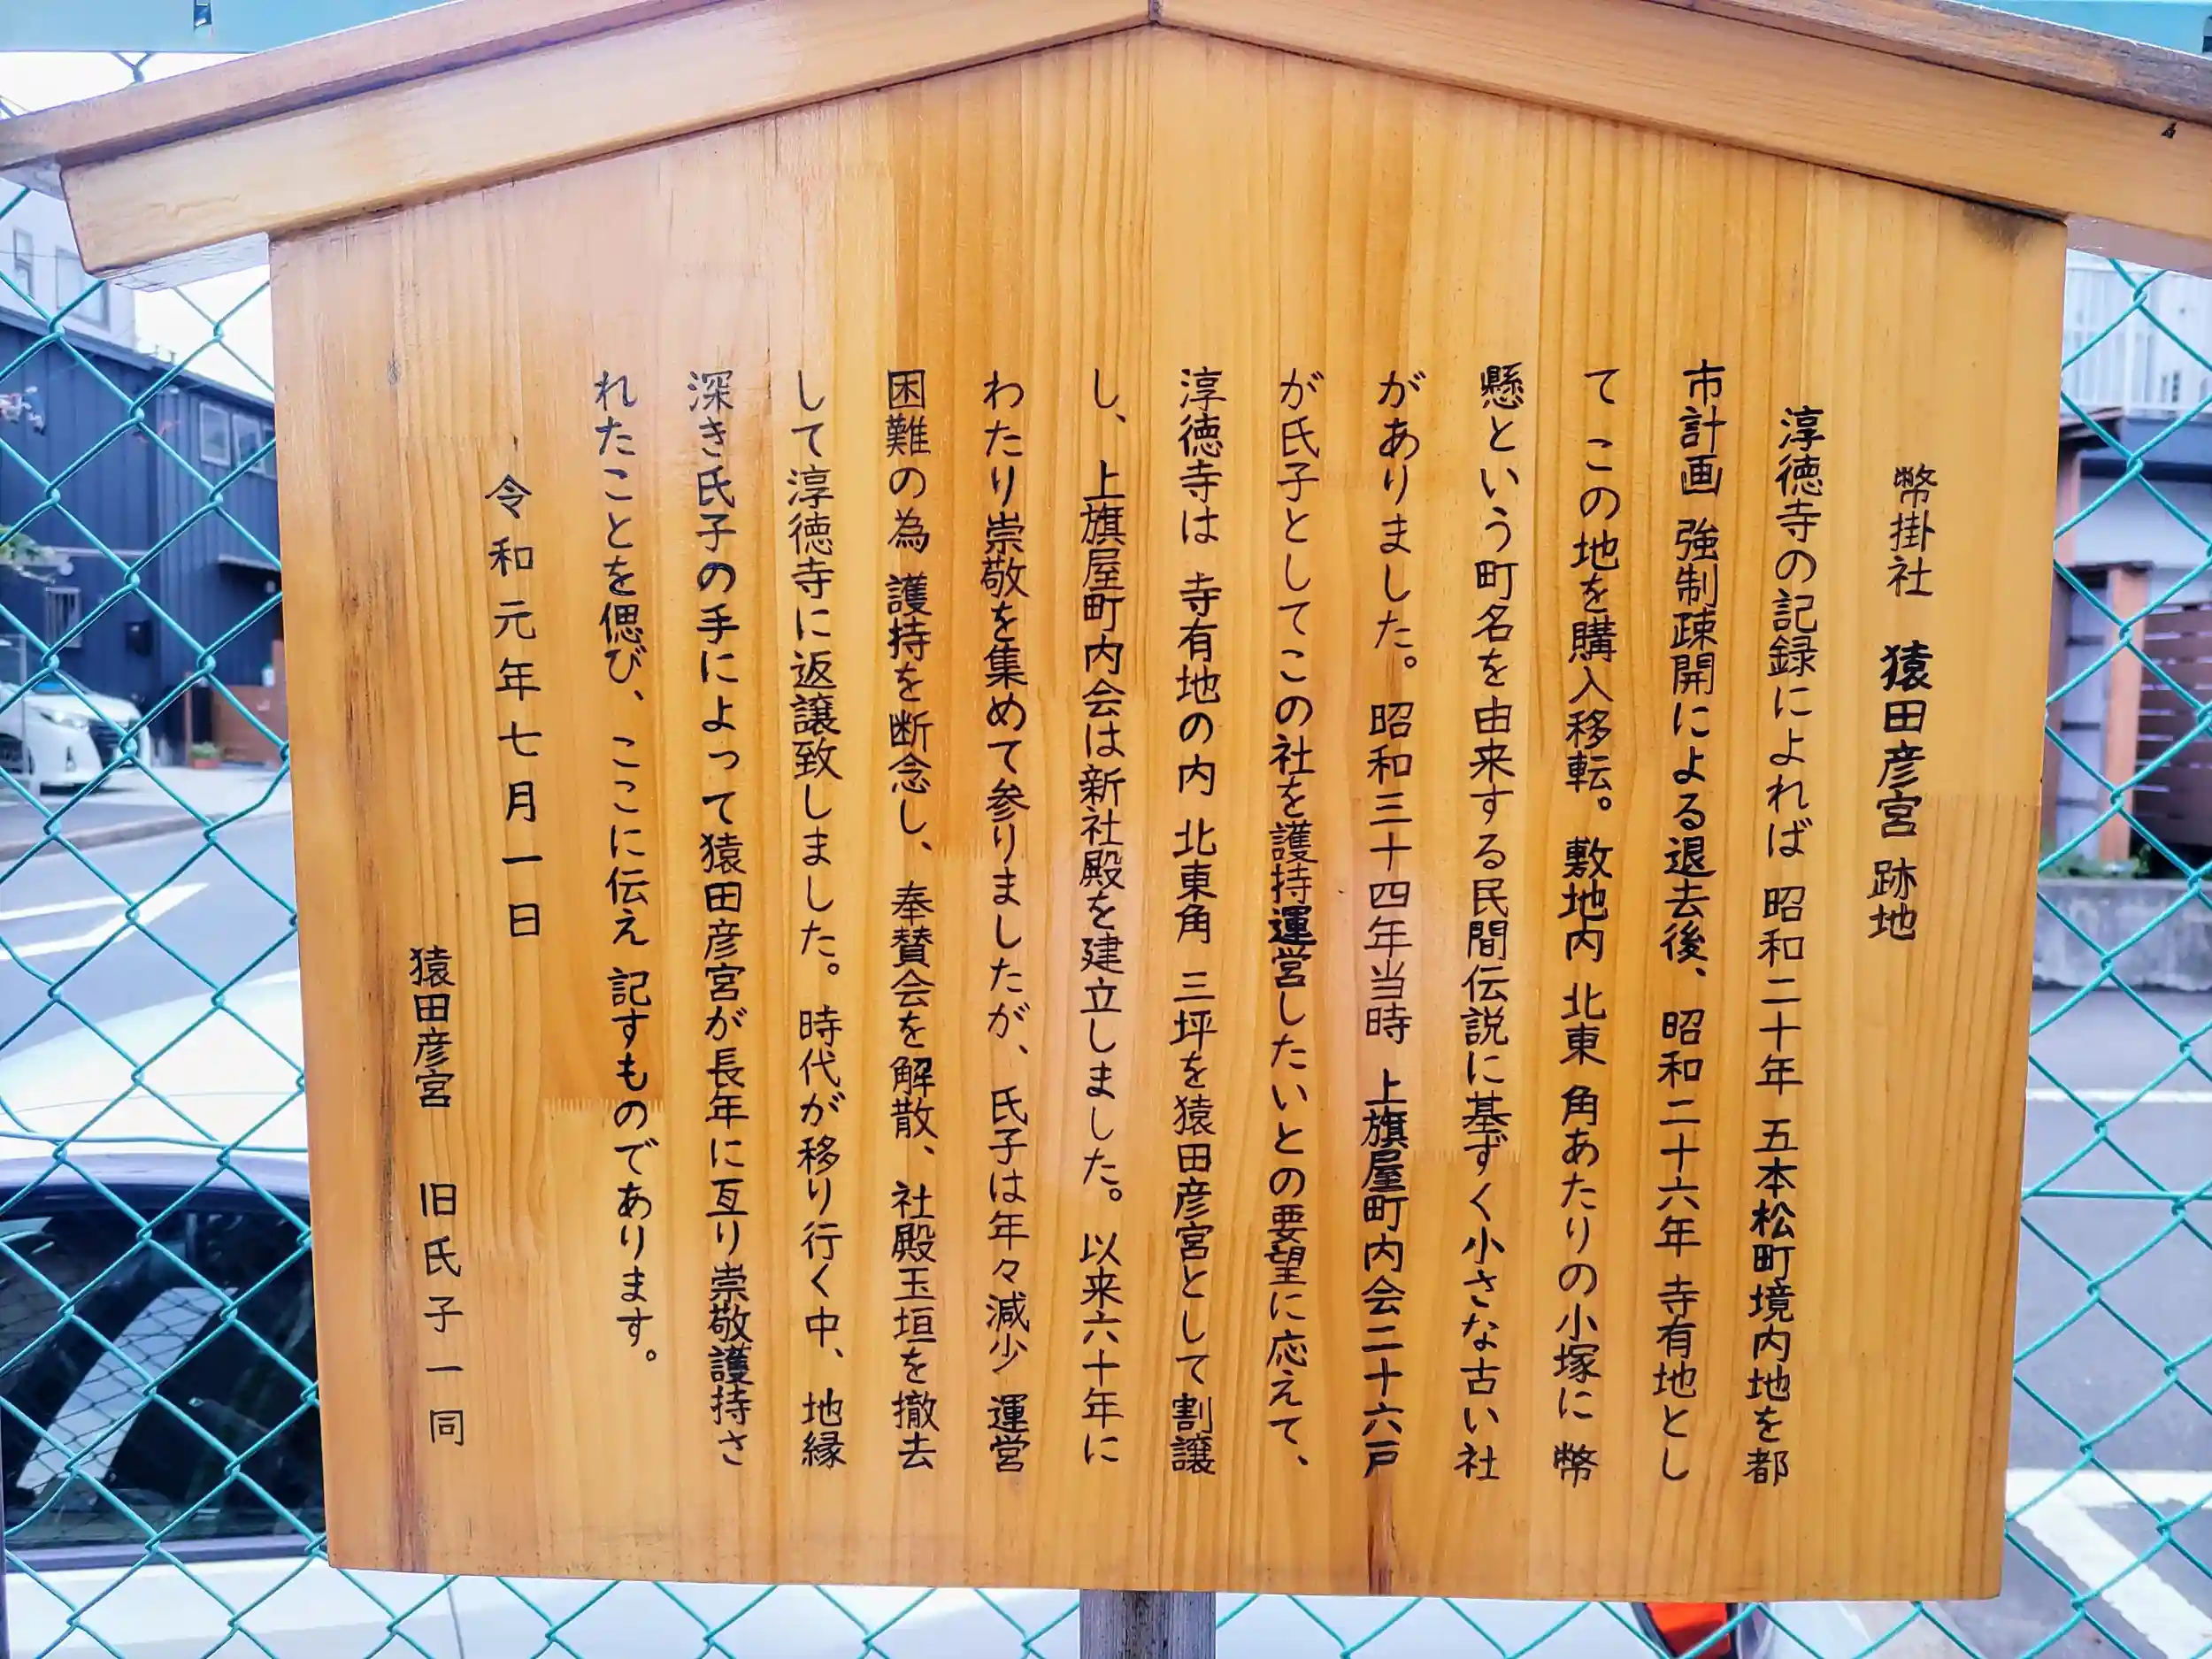 幣掛社 猿田彦宮 跡地
淳徳寺の記録によれば 昭和二十年 五本松町境内地を都
市計画 強制疎開による退去後、昭和二十六年 寺有地とし
て この地を購入移転。敷地内 北東 角あたりの小塚に 幣
懸という町名を由来する民間伝説に基ずく小さな古い社
がありました。昭和三十四年当時 上旗屋町内会二十六戸
が氏子としてこの社を護持運営したいとの要望に応えて、
淳徳寺は 寺有地の内 北東角 三坪を猿田彦宮として割譲
し、上旗屋町内会は新社殿を建立しました。以来六十年に
わたり崇敬を集めて参りましたが、氏子は年々減少 運営
困難の為 護持を断念し、奉賛会を解散、社殿玉垣を撤去
して淳徳寺に返譲致しました。時代が移り行く中、地縁
深き氏子の手によって猿田彦宮が長年に亙り崇敬護持さ
れたことを偲び、ここに伝え 記すものであります。
令和元年七月一日
猿田彦宮 旧氏子一同